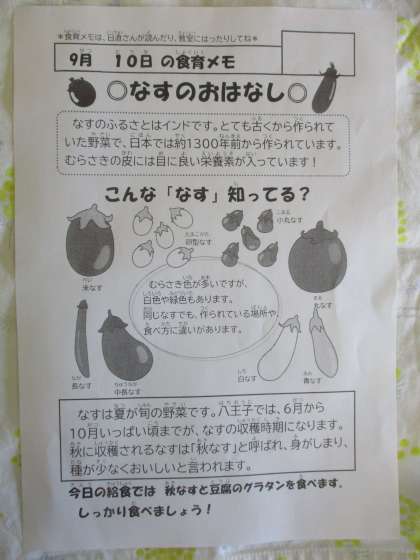 ＊食育メモは、日直さんが読んだり、教室にはったりしてね＊
9月 10日 の食育メモ
◎なすのおはなし◎
なすのふるさとはインドです。とても古くから作られて
いた野菜で、日本では約1300年前から作られています。
むらさきの皮には目に良い栄養素が入っています！
こんな「なす」知ってる？
米なす
卵型なす
小丸なす
丸なす
むらさき色が多いですが、
白色や緑色もあります。
同じなすでも、作られている場所や、
食べ方に違いがあります。
長なす
中長なす
白なす
青なす
なすは夏が旬の野菜です。八王子では、6月から
10月いっぱい頃までが、なすの収穫時期になります。
秋に収穫されるなすは「秋なす」と呼ばれ、身がしまり、
種が少なくおいしいと言われます。
今日の給食では 秋なすと豆腐のグラタンを食べます。
しっかり食べましょう！